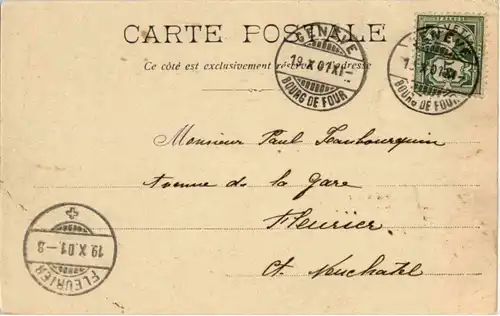 CARTE POSTALE
Ce côté est exclusivement réservé à l'adresse
GENÈVE
19.X.01.XI-
BOURG DE FOUR
GENÈVE
19.X.01.XI-
BOURG DE FOUR
FRANCO
5
Monsieur Paul Jeanbourquin
Avenue de la Gare
Fleurier
Ct. Neuchatel
19.X.01.-8
FLEURIER